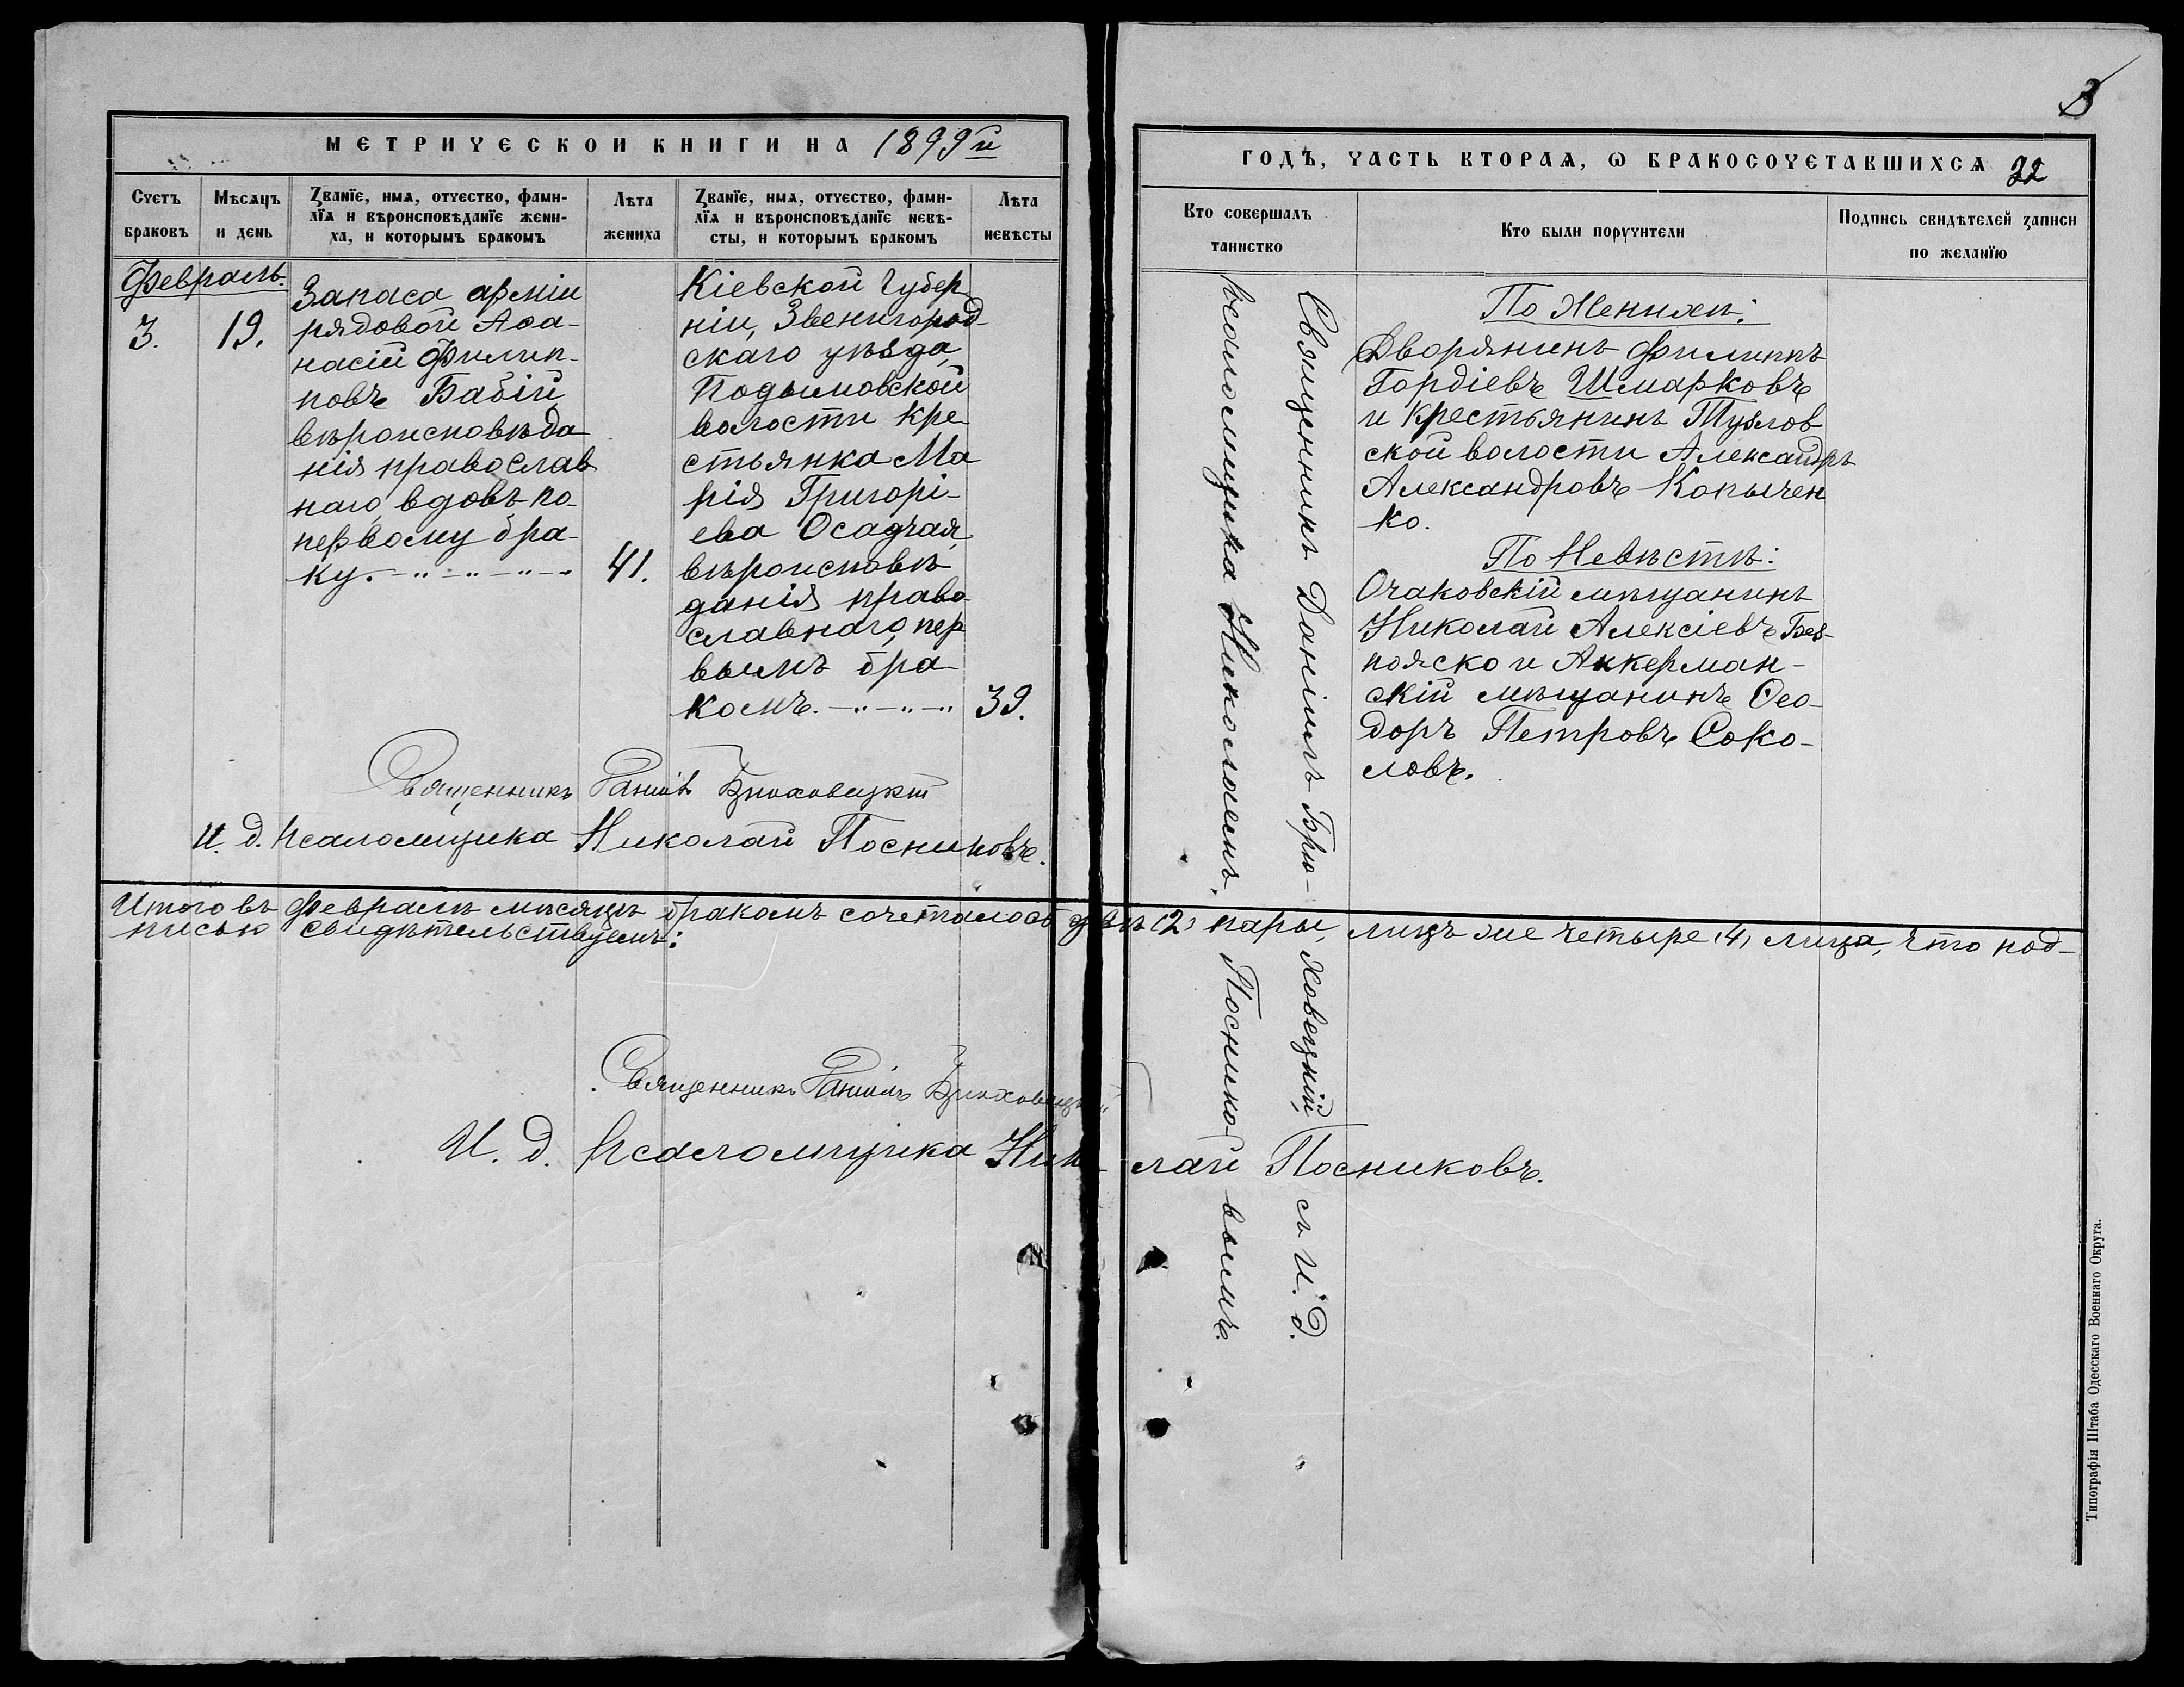 3
МЕТРИЧЕСКОЙ КНИГИ НА 1899 й
ГОДЪ, ЧАСТЬ ВТОРАЯ, Ѡ БРАКОСОЧЕТАВШИХСЯ 32
Счетъ браковъ
Мѣсяцъ и день
Званїе, имя, отчество, фами-
лїя и вѣроисповѣданїе жени-
ха, и которымъ бракомъ
Лѣта жениха
Званїе, имя, отчество, фами-
лїя и вѣроисповѣданїе невѣ-
сты, и которымъ бракомъ
Лѣта невѣсты
Кто совершалъ таинство
Кто были поручители
Подпись свидѣтелей записи по желанїю
Февраль.
3.
19.
Запаса арміи
рядовой Аѳа-
насій Филип-
повъ Бабій,
вѣроисповѣда
нія православ
наго, вдовъ по-
первому бра-
ку.
41.
Кіевской Губер
ніи, Звенигород-
скаго уѣзда,
волости кре-
стьянка Ма
рія Григорі-
ева Осадчая,
вѣроисповѣ
данія право-
славнаго, пер
вымъ бра-
комъ.
39.
Священникъ Даніилъ Брюховецкій
И. д. псаломщика Николай Посниковъ.
Священникъ Даніилъ Брю-ховецкій, съ И. д.
псаломщика Николаемъ Поснико-вымъ.
По Женихѣ:
Дворянинъ Филиппъ
Гордіевъ Шмарковъ
и крестьянинъ Тузлов
ской волости Александръ
Александровъ Копычен
ко.
По Невѣстѣ:
Очаковскій мѣщанинъ
Николай Алексіевъ Без-
пояско и Аккерман-
скій мѣщанинъ Ѳео-
доръ Петровъ Соко-
ловъ.
Итого въ Февралѣ мѣсяцѣ бракомъ сочеталось двѣ (2) пары, лицъ же четыре (4) лица, что под-
писью свидѣтельствуемъ:
Священникъ Даніилъ Брюховецкій
И. д. псаломщика Нико-лай Посниковъ.
Типографія Штаба Одесскаго Военнаго Округа.